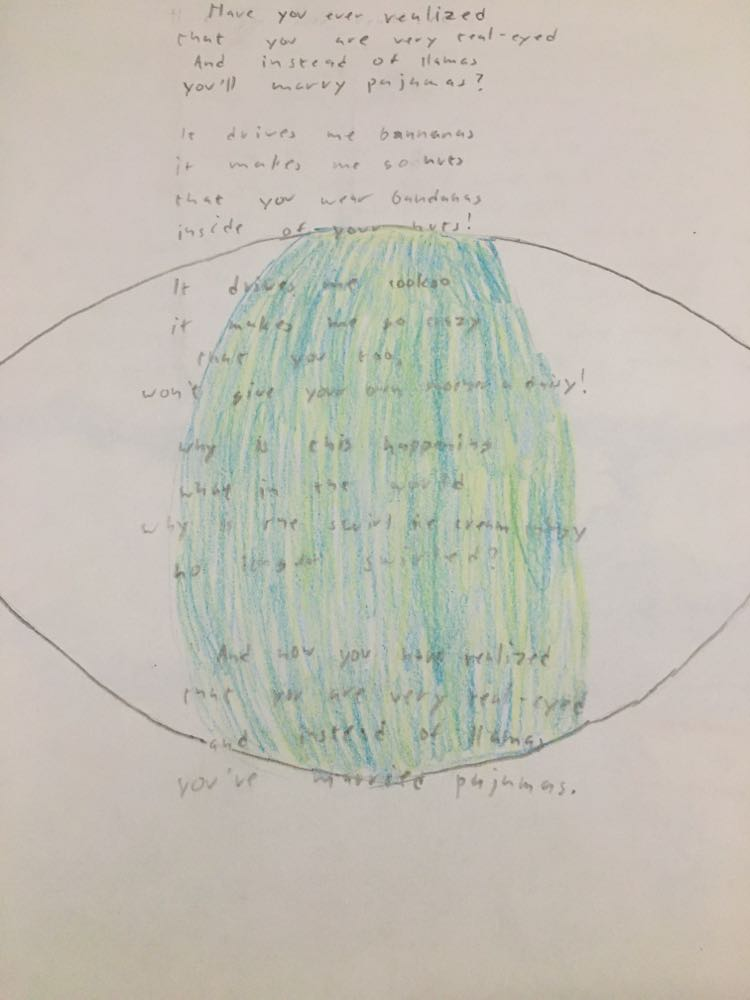 Have you ever realized
that you are very real-eyed
And instead of llamas
you'll marry pajamas?
It drives me bannanas
it makes me so nuts
that you wear bandanas
inside of your huts!
It drives me cookoo
it makes me so crazy
that you too,
won't give your own mother a daisy!
why is this happening
what in the world
why is the swirl ice cream
no longer swirled?
And now you have realized
that you are very real-eyed
and instead of llamas
you've married pajamas.